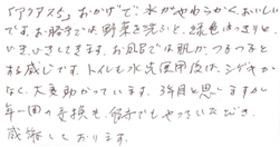 「アクアス」おかげで、水がやわらかく、おいしい
です。お勝手では野菜を洗ふと、緑色はっきりと、
いきいきしてきます。お風呂では肌が、つるつると
する感じです。トイレも水洗使用後は、シゲキが
なく、大変助かっています。3年目と思いますが
年一回の交換も、銀でもやっていただき
感謝しております。